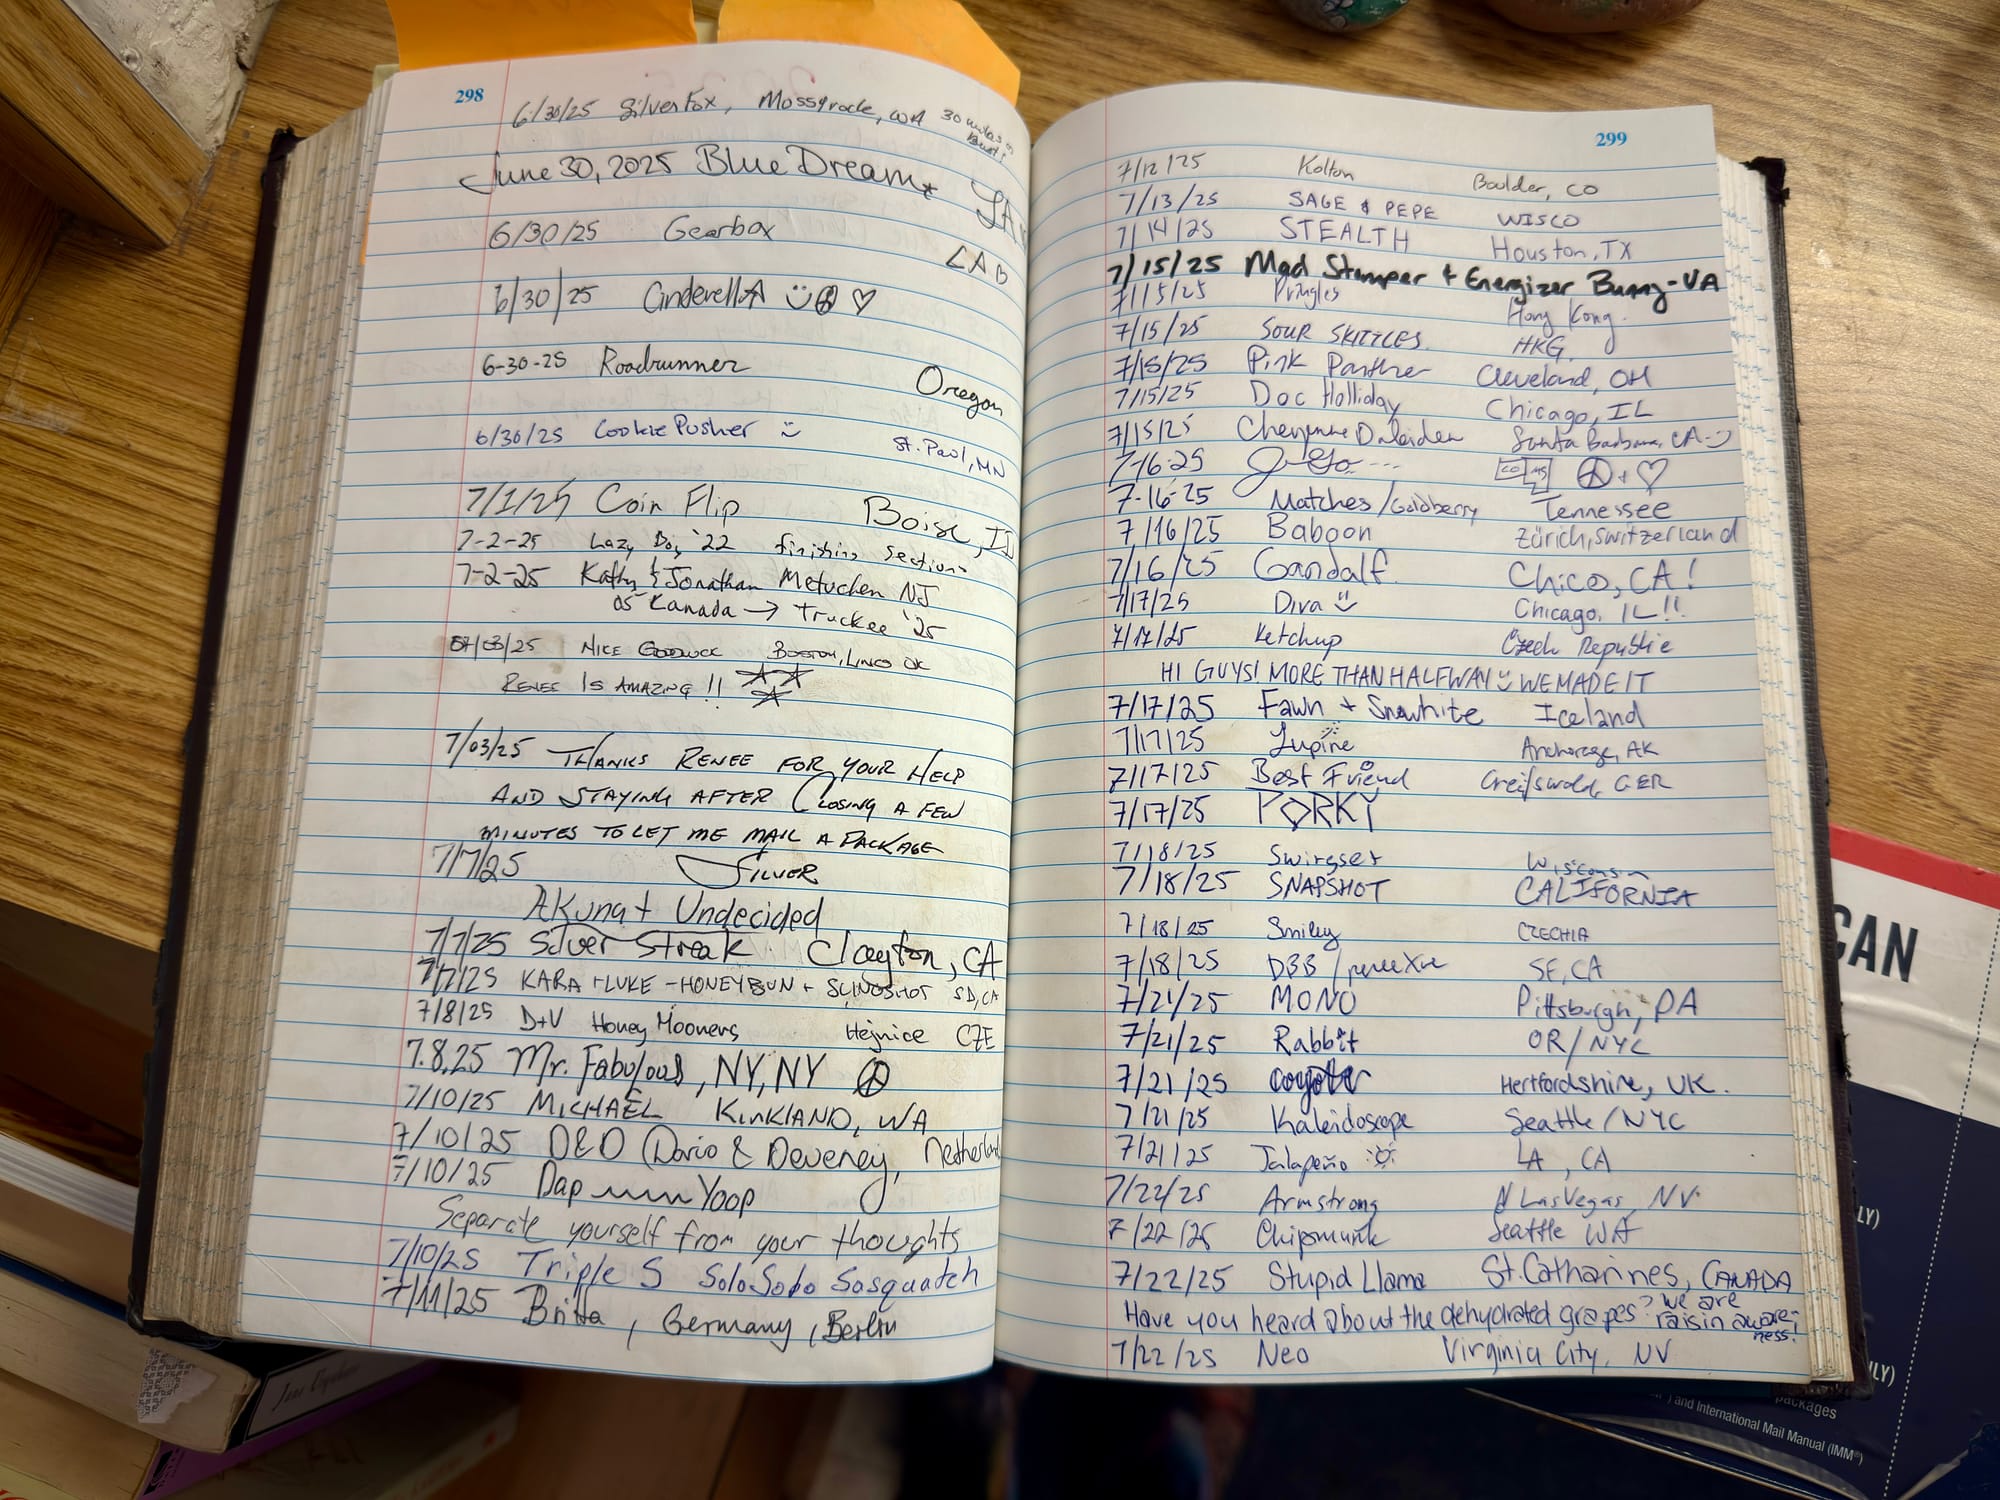 298
6/30/25 Silver Fox, Mossyrock, WA 30 miles
June 30, 2025 Blue Dream
6/30/25 Gearbox
LAB
6/30/25 CinderellA
6-30-25 Roadrunner
Oregon
6/30/25 Cookie Pusher
St. Paul, MN
7/1/25 Coin Flip Boise, ID
7-2-25 Lazy Boy '22 finishing section
7-2-25 Kathy & Jonathan Metuchen NJ
05 Kanada → Truckee '25
07/03/25 NICE BOSTON, LINCS UK
RENEE IS AMAZING !!
7/03/25 THANKS RENEE FOR YOUR HELP
AND STAYING AFTER CLOSING A FEW
MINUTES TO LET ME MAIL A PACKAGE
SILVER
7/7/25
AKuna + Undecided
7/7/25 Silver Streak Clayton, CA
7/7/25 KARA + LUKE - HONEYBUN + SLINGSHOT SD, CA
7/8/25 D+V Honey Mooners Hejnice CZE
7.8.25 Mr. Fabulous, NY, NY
7/10/25 MICHAEL KIRKLAND, WA
7/10/25 D&D (Dario & Deveney, Netherland
7/10/25 Dap Yoop
Separate yourself from your thoughts
7/10/25 Triple S SoloSobo Sasquatch
7/11/25 Britta, Germany, Berlin
299
7/12/25 Kolton Boulder, CO
7/13/25 SAGE & PEPE WISCO
7/14/25 STEALTH Houston, TX
7/15/25 Mad Stamper & Energizer Bunny - VA
7/15/25 Pringles Hong Kong.
7/15/25 SOUR SKITTLES. HKG.
7/15/25 Pink Panther Cleveland, OH
7/15/25 Doc Holliday Chicago, IL
7/15/25 Cheyenne Daleiden Santa Barbara, CA :)
7-16-25 CO MS
7-16-25 Matches/Goldberry Tennessee
7/16/25 Baboon Zürich, Switzerland
7/16/25 Gandalf Chico, CA!
7/17/25 Diva Chicago, IL!!
7/17/25 Ketchup Czech Republic
HI GUYS! MORE THAN HALFWAY WE MADE IT
7/17/25 Fawn + Snowhite Iceland
7/17/25 Lupine Anchorage, AK
7/17/25 Best Friend Greifswald, GER
7/17/25 PORKY
7/18/25 Swingset Wisconsin
7/18/25 SNAPSHOT CALIFORNIA
7/18/25 Smiley CZECHIA
7/18/25 DBB / SF, CA
7/21/25 MONO Pittsburgh, PA
7/21/25 Rabbit OR/NYC
7/21/25 coyote Hertfordshire, UK.
7/21/25 Kaleidoscope Seattle/NYC
7/21/25 Jalapeño LA, CA
7/22/25 Armstrong N Las Vegas, NV
7/22/25 Chipmunk Seattle WA
7/22/25 Stupid Llama St. Catharines, CANADA
Have you heard about the dehydrated grapes? We are
raisin aware-
ness!
7/22/25 Neo Virginia City, NV
CAN
LY)
LY)
packages
) and International Mail Manual (IMM®)